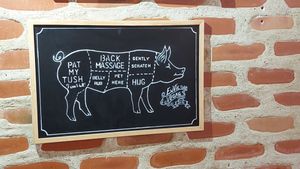 PAT
MY
TUSH
BACK
MASSAGE
GENTLY
SCRATCH
BELLY
RUB
PET
HERE
HUG